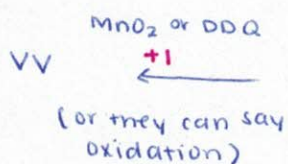 MnO2 or DDQ
vv
+1
(or they can say
oxidation)